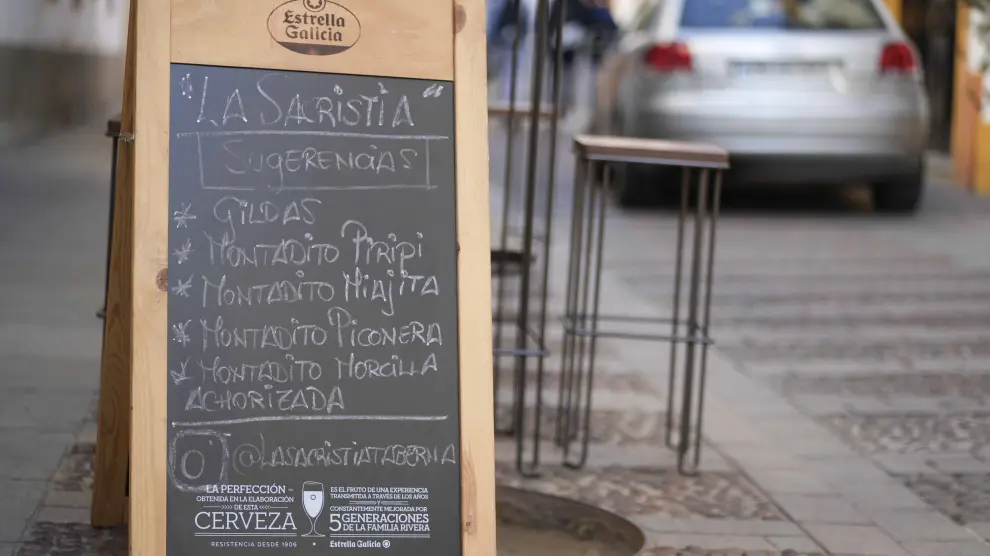 Estrella
Galicia
"LA SACRISTÍA"
SUGERENCIAS
* GILDAS
* MONTADITO PIRIPI
* MONTADITO MIAJITA
* MONTADITO PICONERA
* MONTADITO MORCILLA
ACHORIZADA
@LASACRISTIATABERNA
LA PERFECCIÓN
OBTENIDA EN LA ELABORACIÓN
DE ESTA
CERVEZA
RESISTENCIA DESDE 1906
ES EL FRUTO DE UNA EXPERIENCIA
TRANSMITIDA A TRAVÉS DE LOS AÑOS
Y
CONSTANTEMENTE MEJORADA POR
5 GENERACIONES
DE LA FAMILIA RIVERA
Estrella Galicia